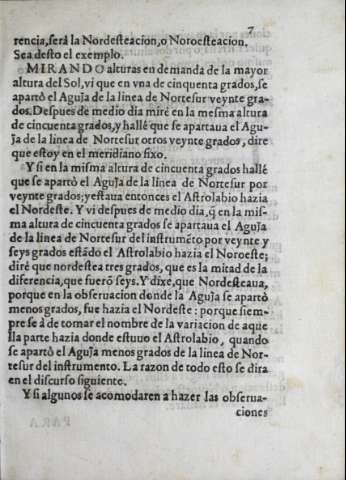 7
rencia, ſerá la Nordeſteacion, o Noroeſteacion.
Sea deſto el exemplo.
MIRANDO alturas en demanda de la mayor
altura del Sol, vi que en vna de cinquenta grados, ſe
apartô el Aguja de la linea de Norteſur veynte gra-
dos. Deſpues de medio dia miré en la meſma altura
de cincuenta grados, y hallé que ſe apartaua el Agu-
ja de la linea de Norteſur otros veynte grados, dire
que eſtoy en el meridiano fixo.
Y ſi en la miſma altura de cincuenta grados hallé
que ſe apartô el Aguja de la linea de Norteſur por
veynte grados; y eſtaua entonces el Aſtrolabio hazia
el Nordeſte. Y vi deſpues de medio dia, q̃ en la miſ-
ma altura de cincuenta grados ſe apartaua el Aguja
de la linea de Norteſur del inſtrumẽto por veynte y
ſeys grados eſtãdo el Aſtrolabio hazia el Noroeſte;
diré que nordeſtea tres grados, que es la mitad de la
diferencia, que fuerõ ſeys. Y dixe, que Nordeſteaua,
porque en la obſeruacion donde la Aguja ſe apartô
menos grados, fue hazia el Nordeſte: porque ſiem-
pre ſe â de tomar el nombre de la variacion de aque
lla parte hazia donde eſtuuo el Aſtrolabio, quando
ſe apartô el Aguja menos grados de la linea de Nor-
teſur del inſtrumento. La razon de todo eſto ſe dira
en el diſcurſo ſiguiente.
Y ſi algunos ſe acomodaren a hazer las obſerua-
ciones